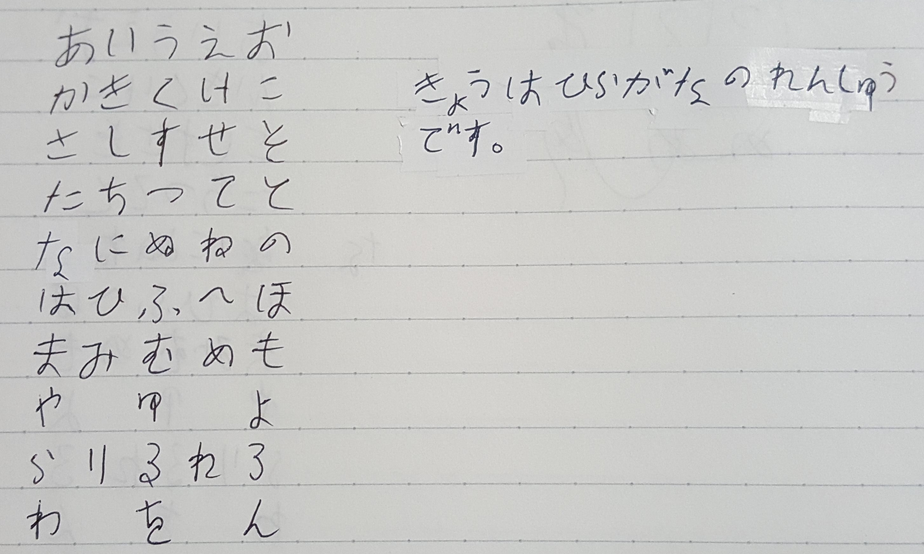 あいうえお
かきくけこ
さしすせそ
たちつてと
なにぬねの
はひふへほ
まみむめも
や ゆ よ
らりるれろ
わ を ん
きょうはひらがなのれんしゅう
です。